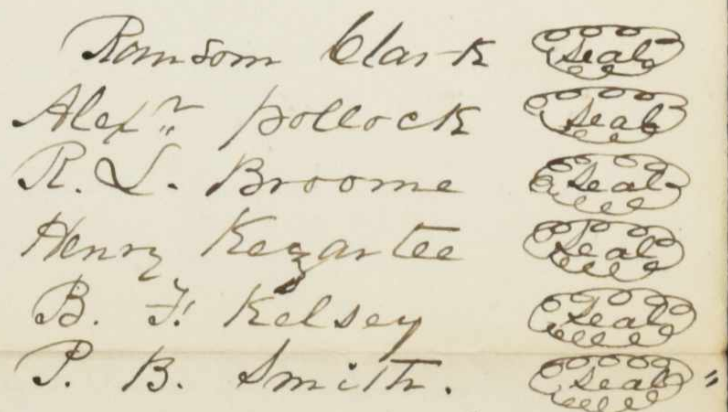 Ransom Clark Seal
Alexr pollock Seal
R. L. Broome Seal
Henry Kezartee Seal
B. F. Kelsey Seal
P. B. Smith. Seal "